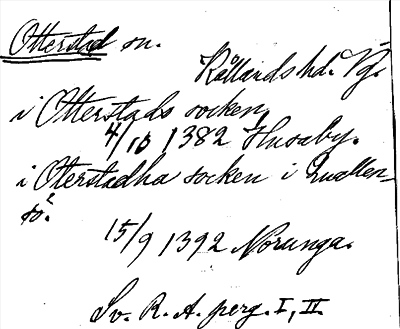 Otterstad sn.
Kållands hd. Vg.
i Otterstads socken
4/10 1382 Husaby.
i Oterstadha socken i Quallen-
sö.
15/9 1392 Norunga.
Sv. R. A. perg. I, II.